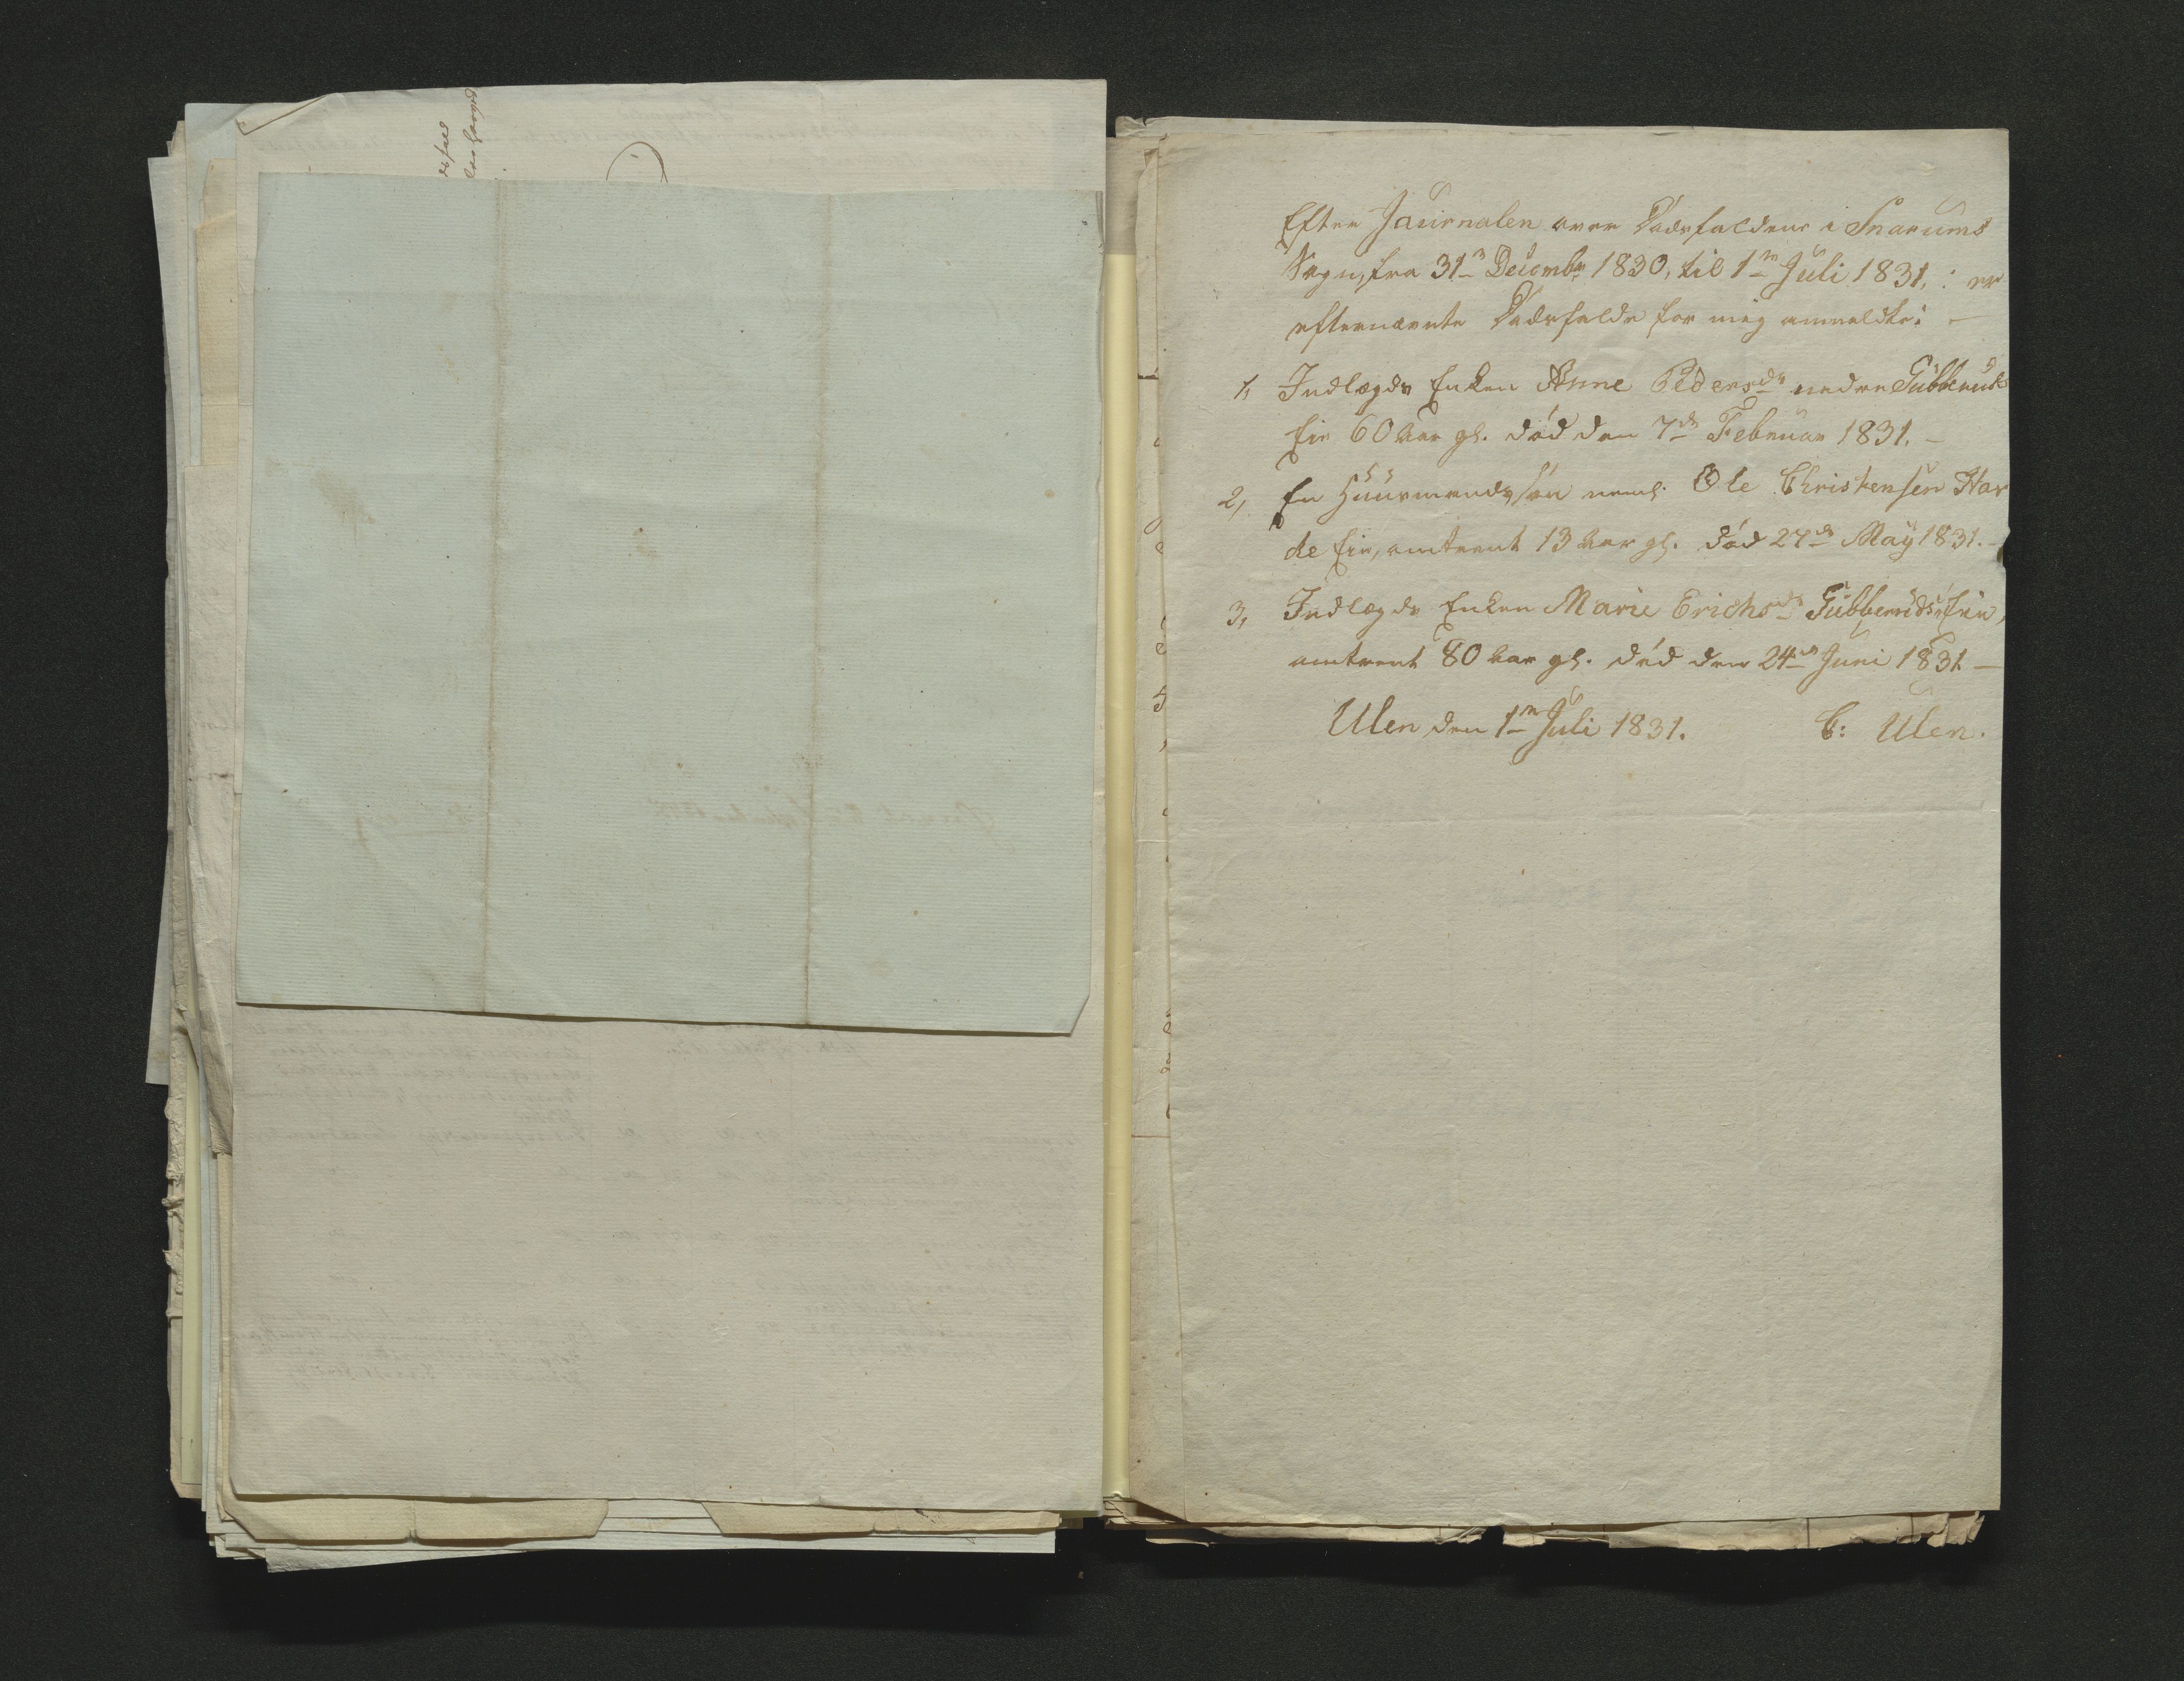 Efter Jaurnalen over Dødsfaldene i Snarums
Sogn, fra 31n Decembr 1830, til 1n Juli 1831, : er
efternævnte Dødsfalde for mig anmeldte: —
1, Indlægds Enken Anne Pedersdr nedre Gubberud
Eie 60 Aar gl. død den 7de Februar 1831. —
2, En Huusmandssøn neml. Ole Christensen Har
ke Eie, omtrent 13 Aar gl. død 27de May 1831. —
3, Indlægds Enken Marie Erichsdr Gubberuds Eie,
omtrent 80 Aar gl. død den 24de Juni 1831 —
Ulen den 1n Juli 1831. C: Ulen.